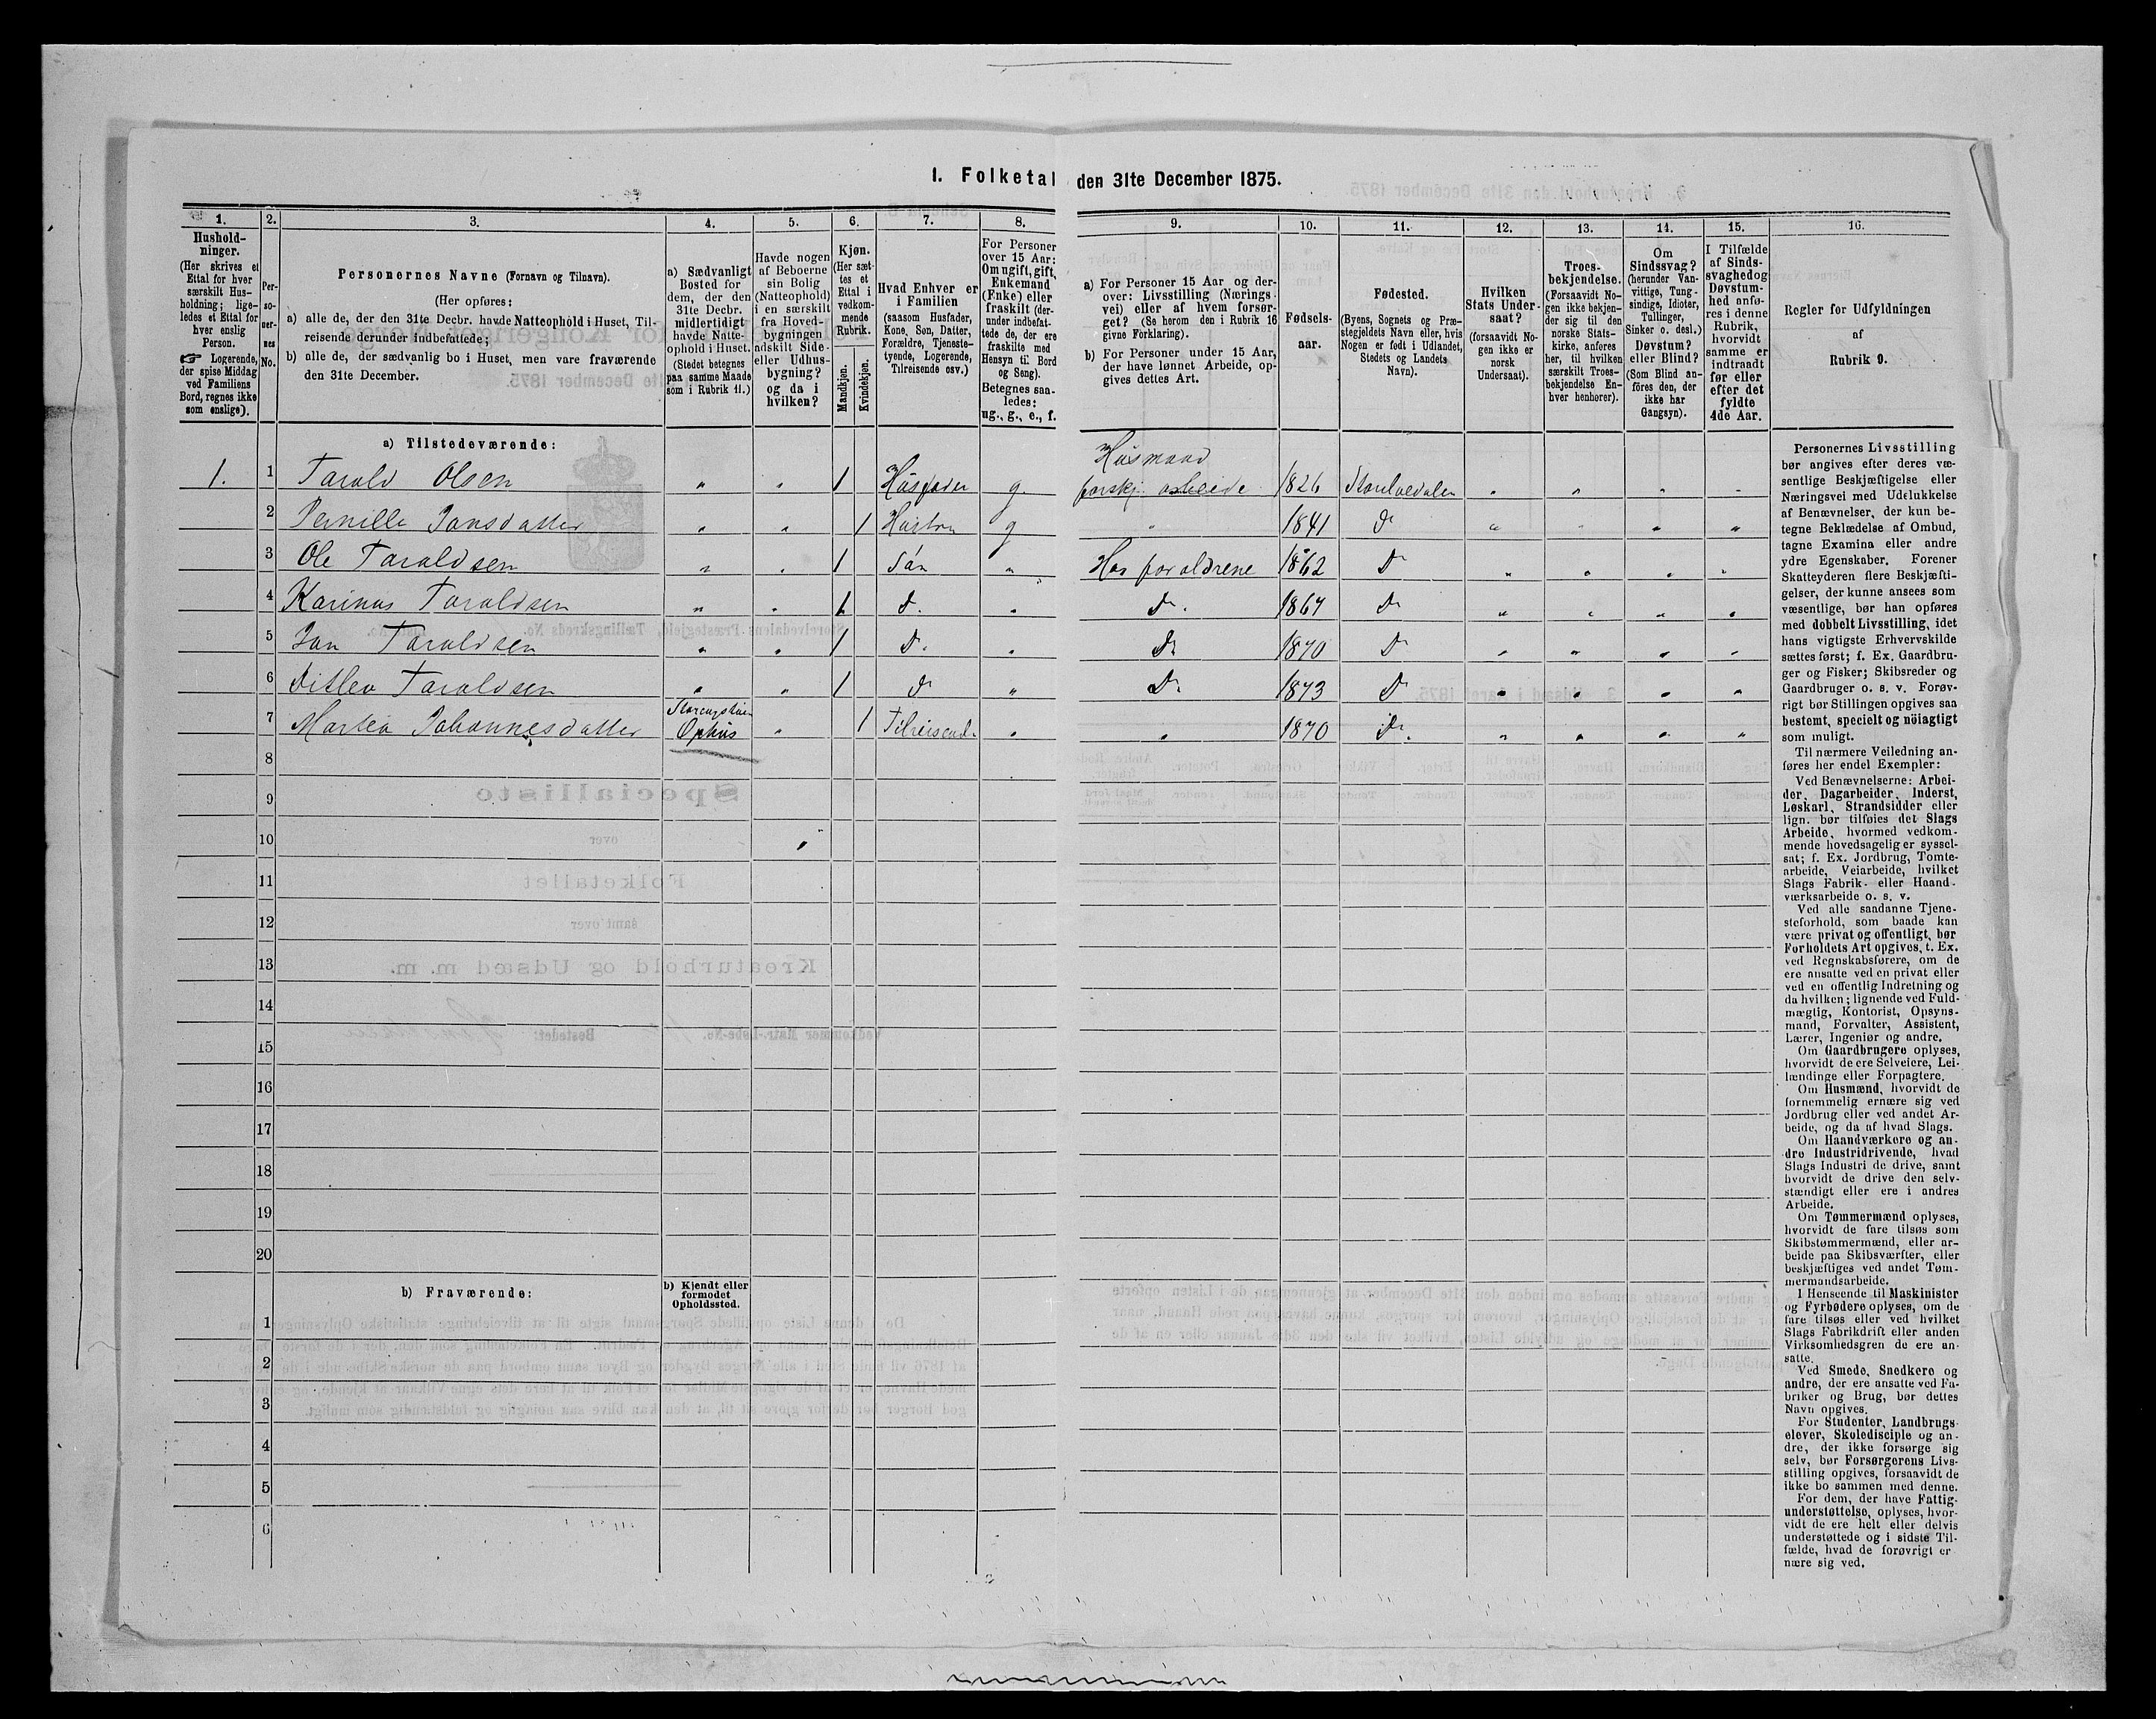 1. Folketal den 31te December 1875.
1. 2. 3. 4. 5. 6. 7. 8. 9. 10. 11. 12. 13. 14. 15. 16.
Hushold-
ninger.
(Her skrives et
Ettal for hver
særskilt Hus-
holdning; lige-
ledes et Ettal for
hver enslig
Person.
☞ Logerende,
der spise Middag
ved Familiens
Bord, regnes ikke
som enslige).
Per-
so-
ner-
nes
No.
Personernes Navne (Fornavn og Tilnavn).
(Her opføres:
a) alle de, der den 31te Decbr. havde Natteophold i Huset, Til-
reisende derunder indbefattede;
b) alle de, der sædvanlig bo i Huset, men vare fraværende
den 31te December.
a) Sædvanligt
Bosted for
dem, der den
31te Decbr.
midlertidigt
havde Natte-
ophold i Huset.
(Stedet betegnes
paa samme Maade
som i Rubrik 11.)
Havde nogen
af Beboerne
sin Bolig
(Natteophold)
i en særskilt
fra Hoved-
bygningen
adskilt Side-
eller Udhus-
bygning?
og da i
hvilken?
Kjøn.
(Her sæt-
tes et
Ettal i
vedkom-
mende
Rubrik.
Mandkjøn.
Kvindekjøn.
Hvad Enhver er
i Familien
(saasom Husfader,
Kone, Søn, Datter,
Forældre, Tjeneste-
tyende, Logerende,
Tilreisende osv.)
For Personer
over 15 Aar:
Om ugift, gift,
Enkemand
(Enke) eller
fraskilt (der-
under indbefat-
tede de, der ere
fraskilte med
Hensyn til Bord
og Seng).
Betegnes saa-
ledes:
ug., g., e., f.
a) For Personer 15 Aar og der-
over: Livsstilling (Nærings-
vei) eller af hvem forsør-
get? (Se herom den i Rubrik 16
givne Forklaring).
b) For Personer under 15 Aar,
der have lønnet Arbeide, op-
gives dettes Art.
Fødsels-
aar.
Fødested.
(Byens, Sognets og Præ-
stegjeldets Navn eller, hvis
Nogen er født i Udlandet,
Stedets og Landets
Navn).
Hvilken
Stats Under-
saat?
(forsaavidt No-
gen ikke er
norsk
Undersaat).
Troes-
bekjendelse.
(Forsaavidt No-
gen ikke bekjen-
der sig til den
norske Stats-
kirke, anføres
her, til hvilken
særskilt Troes-
bekjendelse En-
hver henhører).
Om
Sindssvag?
(herunder Van-
vittige, Tung-
sindige, Idioter,
Tullinger,
Sinker o. desl.)
Døvstum?
eller Blind?
(Som Blind an-
föres den, der
ikke har
Gangsyn).
I Tilfælde
af Sinds-
svaghed og
Døvstum-
hed anfø-
res i denne
Rubrik,
hvorvidt
samme er
indtraadt
før eller
efter det
fyldte
4de Aar.
Regler for Udfyldningen
af
Rubrik 9.
a) Tilstedeværende:
Husmand
1. 1 Tarald Olsen " " 1 Husfader g. forskj. arbeide 1826 Storelvedalen " " " "
2 Pernille Jonsdatter " " 1 Hustru g " 1841 do " " " "
3 Ole Taraldsen " " 1 Søn " Hos forældrene 1862 Do " " " "
4 Karinus Taraldsen " " 1 d. " do. 1867 Do " " " "
5 Jon Taraldsen " " 1 D. " Do 1870 Do " " " "
6 Ditlev Taraldsen " " 1 do " Do. 1873 Do " " " "
7 Martea Johannesdatter Ophus " 1 Tilreisend. " " 1870 do. " " " "
8
9
10
11
12
13
14
15
16
17
18
19
20
b) Fraværende:
b) Kjendt eller
formodet
Opholdssted.
1
2
3
4
5
6
Personernes Livsstilling
bør angives efter deres væ-
sentlige Beskjæftigelse eller
Næringsvei med Udelukkelse
af Benævnelser, der kun be-
tegne Beklædelse af Ombud,
tagne Examina eller andre
ydre Egenskaber. Forener
Skatteyderen flere Beskjæfti-
gelser, der kunne ansees som
væsentlige, bør han opføres
med dobbelt Livsstilling, idet
hans vigtigste Erhvervskilde
sættes først; f. Ex. Gaardbru-
ger og Fisker; Skibsreder og
Gaardbruger o. s. v. Forøv-
rigt bør Stillingen opgives saa
bestemt, specielt og nöiagtigt
som muligt.
Til nærmere Veiledning an-
føres her endel Exempler:
Ved Benævnelserne: Arbei-
der, Dagarbeider, Inderst,
Løskarl, Strandsidder eller
lign. bør tilføies det Slags
Arbeide, hvormed vedkom-
mende hovedsagelig er syssel-
sat; f. Ex. Jordbrug, Tomte-
arbeide, Veiarbeide, hvilket
Slags Fabrik- eller Haand-
værksarbeide o. s. v.
Ved alle saadanne Tjene-
steforhold, som baade kan
være privat og offentligt, bør
Forholdets Art opgives, t. Ex.
ved Regnskabsførere, om de
ere ansatte ved en privat eller
ved en offentlig Indretning og
da hvilken; lignende ved Fuld-
mægtig, Kontorist, Opsyns-
mand, Forvalter, Assistent,
Lærer, Ingeniør og andre.
Om Gaardbrugere oplyses,
hvorvidt de ere Selveiere, Lei-
lændinge eller Forpagtere.
Om Husmænd, hvorvidt de
fornemmelig ernære sig ved
Jordbrug eller ved andet Ar-
beide, og da af hvad Slags.
Om Haandværkere og an-
dre Industridrivende, hvad
Slags Industri de drive, samt
hvorvidt de drive den selv-
stændigt eller ere i andres
Arbeide.
Om Tømmermænd oplyses,
hvorvidt de fare tilsøs som
Skibstømmermænd, eller ar-
beide paa Skibsværfter, eller
beskjæftiges ved andet Tøm-
mermandsarbeide.
I Henseende til Maskinister
og Fyrbødere oplyses, om de
fare tilsøs eller ved hvilket
Slags Fabrikdrift eller anden
Virksomhedsgren de ere an-
satte.
Ved Smede, Snedkere og
andre, der ere ansatte ved Fa-
briker og Brug, bør dettes
Navn opgives.
For Studenter, Landbrugs-
elever, Skoledisciple og an-
dre, der ikke forsørge sig
selv, bør Forsørgerens Livs-
stilling opgives, forsaavidt de
ikke bo sammen med denne.
For dem, der have Fattig-
understøttelse, oplyses, hvor-
vidt de ere helt eller delvis
understøttede og i sidste Til-
fælde, hvad de forøvrigt er-
nære sig ved.